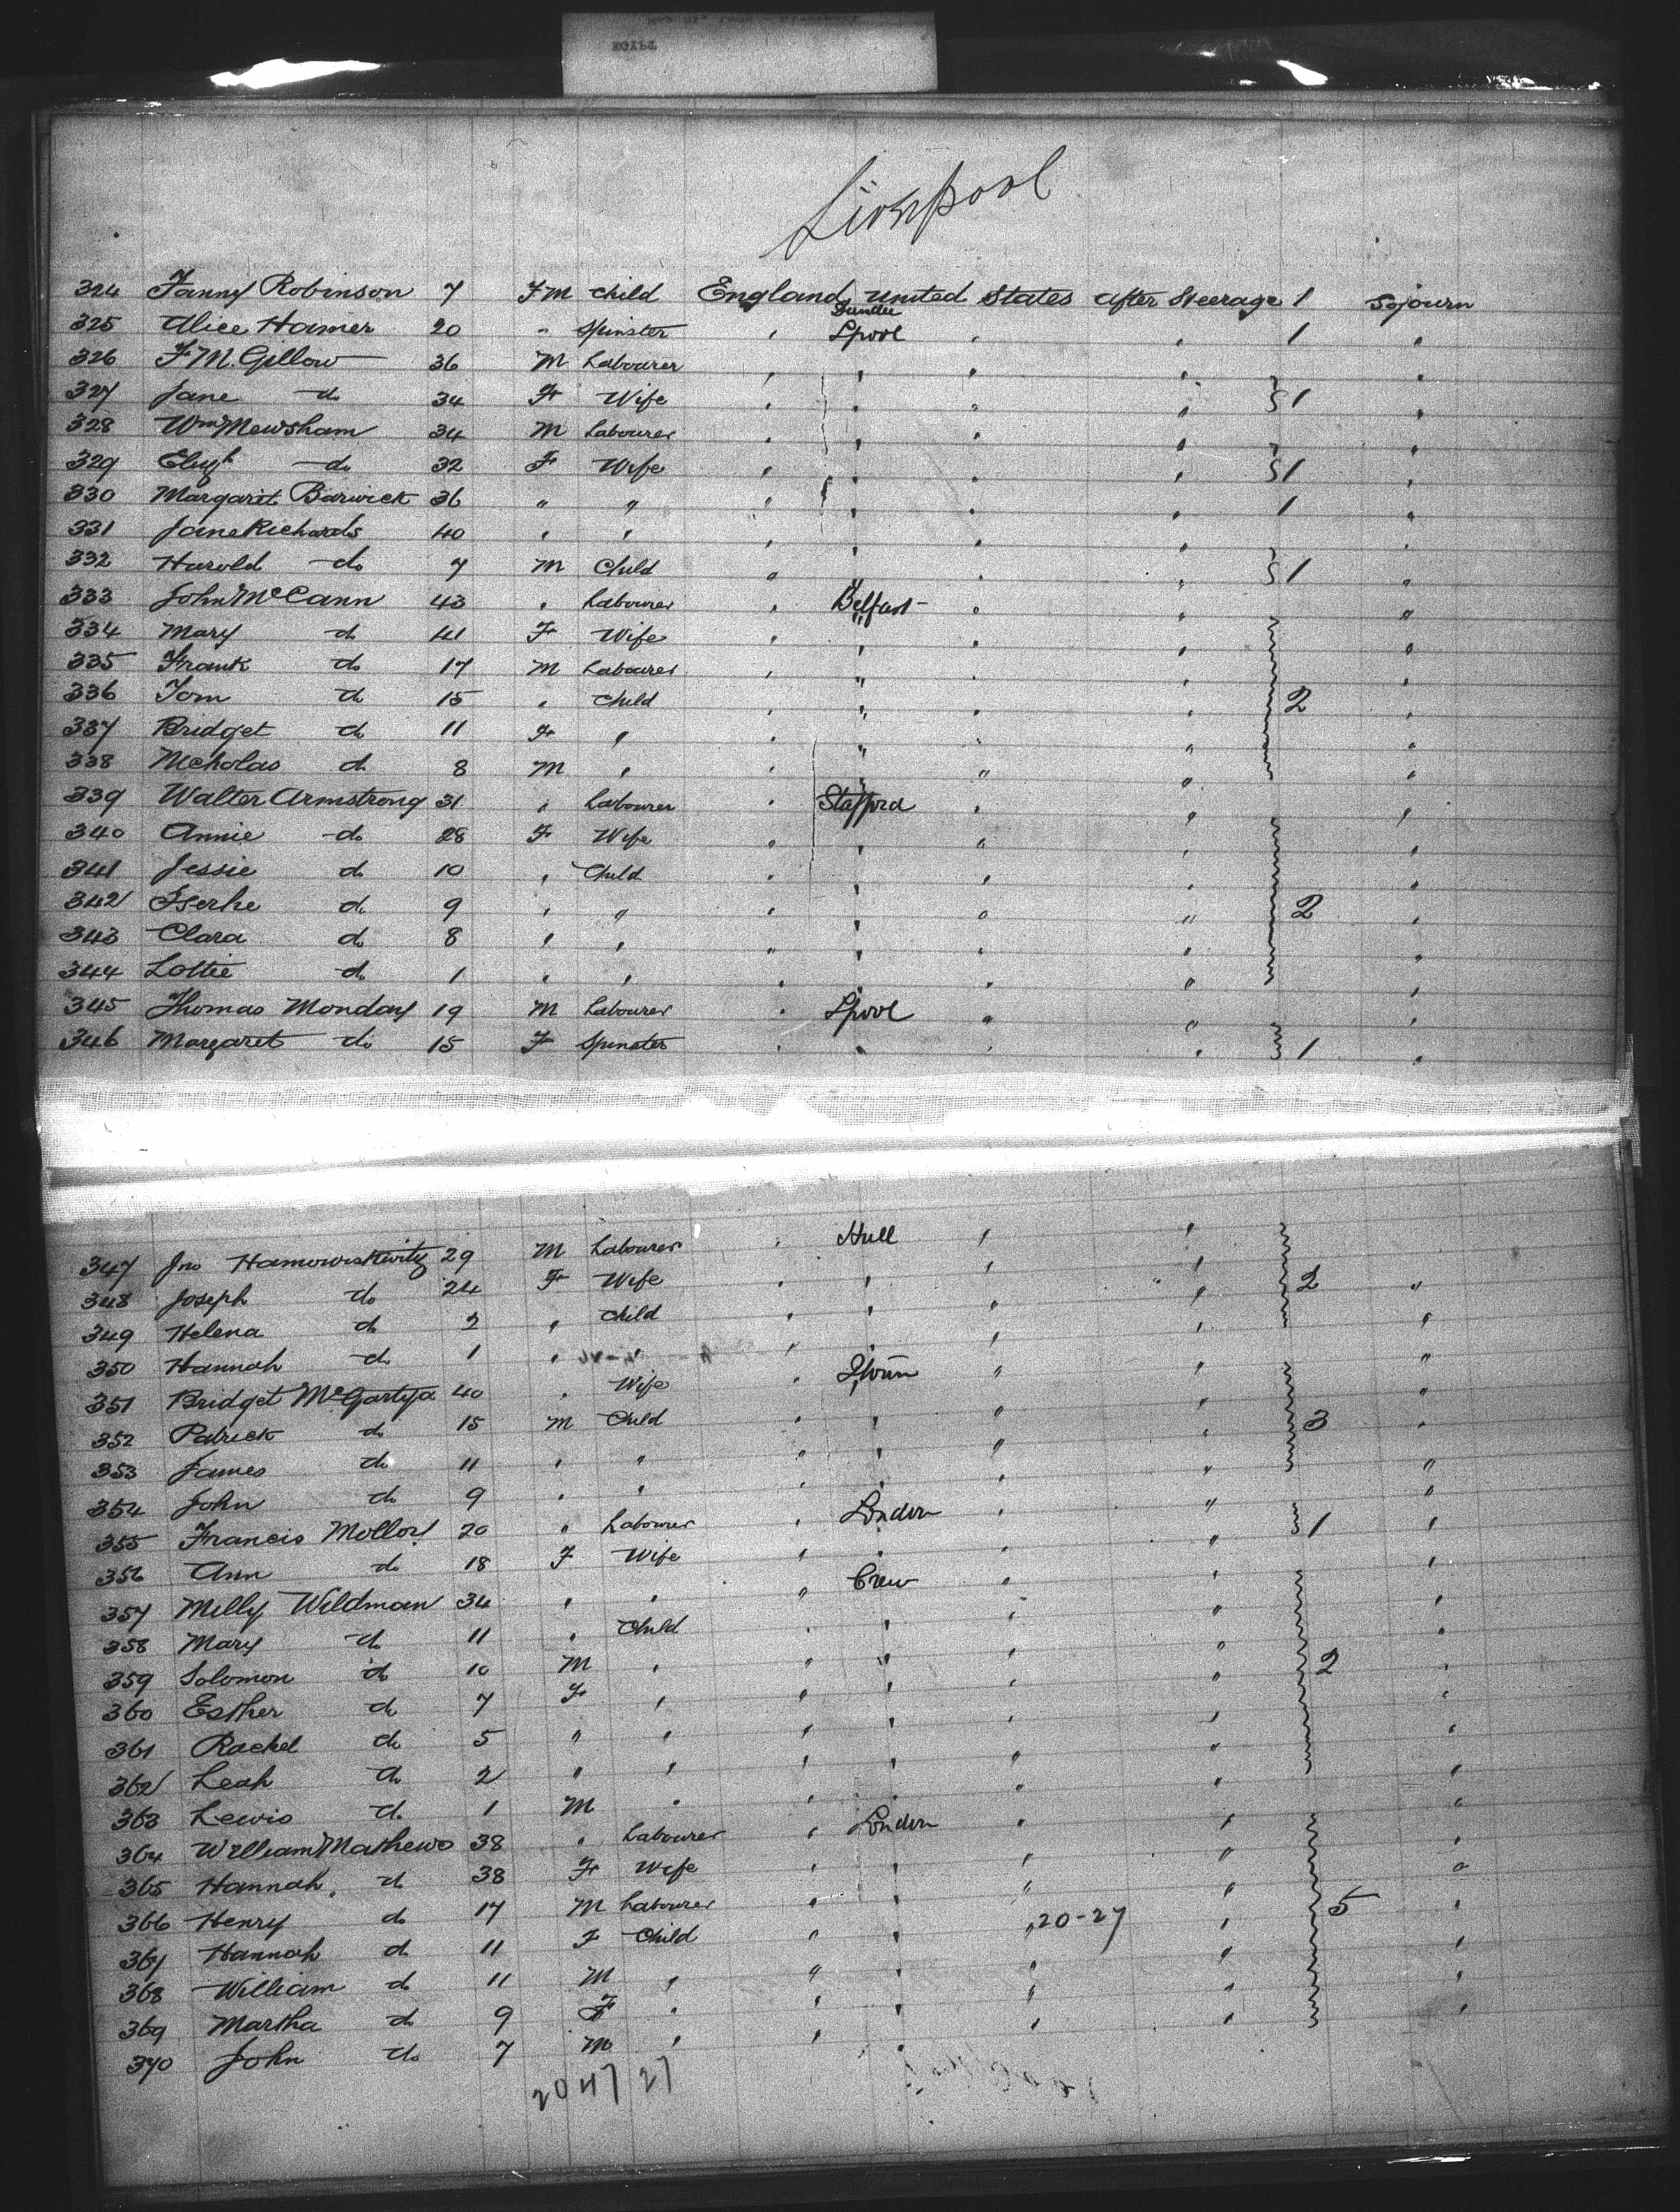 Liverpool
324 Fanny Robinson 7 F M Child England United States after Steerage 1 Sojourn
Dundee
325 Alice Hamer 20 " Spinster " Lpool " " 1 "
326 F M. Gillow 36 M Labourer " " " " "
327 Jane do 34 F Wife " " " " 1 "
328 Wm Mewsham 34 M Labourer " " " " "
329 Elizth do 32 F Wife " " " " 1 "
330 Margaret Barwick 36 " " " " " " 1 "
331 Jane Richards 40 " " " " " " "
332 Harold do 7 M Child " " " " 1 "
333 John McCann 43 " Labourer " Belfast " " "
334 Mary do 41 F Wife " " " " "
335 Frank do 17 M Labourer " " " " "
336 Tom do 15 " Child " " " " 2 "
337 Bridget do 11 F " " " " " "
338 Nicholas do 8 M " " " " " "
339 Walter Armstrong 31 " Labourer " Stafford " " "
340 Annie do 28 F Wife " " " " "
341 Jessie do 10 " Child " " " " "
342 do 9 " " " " " " 2 "
343 Clara do 8 " " " " " " "
344 Lottie do 1 " " " " " " "
345 Thomas Monday 19 M Labourer " Lpool " " "
346 Margaret do 15 F Spinster " " " " 1 "
347 Jno 29 M Labourer " Hull " "
348 Joseph do 24 F Wife " " " " 2 "
349 Helena do 2 " Child " " " " "
350 Hannah do 1 " " " " " " "
351 Bridget 40 " Wife " " " "
352 Patrick do 15 M Child " " " " 3 "
353 James do 11 " " " " " " "
354 John do 9 " " " " " " "
355 Francis Molloy 20 " Labourer " London " " 1 "
356 Ann do 18 F Wife " " " " "
357 Milly Wildman 34 " " " Crew " " "
358 Mary do 11 " Child " " " " "
359 Solomon do 10 M " " " " " 2 "
360 Esther do 7 F " " " " " "
361 Rachel do 5 " " " " " " "
362 Leah do 2 " " " " " " "
363 Lewis do 1 M " " " " " "
364 William Mathews 38 " Labourer " London " " "
365 Hannah do 38 F Wife " " " " "
366 Henry do 17 M Labourer " " " " 5 "
20-27
367 Hannah do 11 F Child " " " " "
368 William do 11 M " " " " " "
369 Martha do 9 F " " " " " "
370 John do 7 M " " "
2047 27